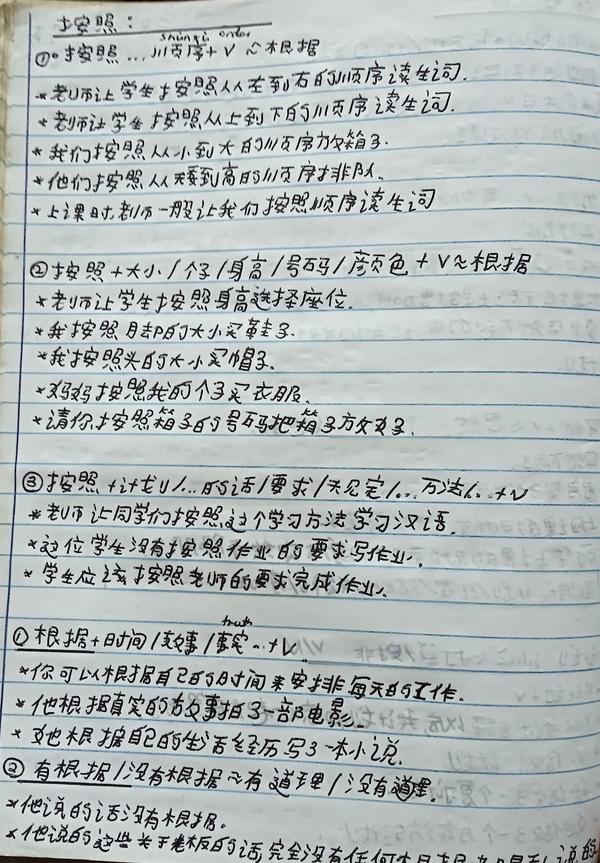 按照：
shùnxì order
①按照...顺序+V ≈根据
*老师让学生按照从左到右的顺序读生词.
*老师让学生按照从上到下的顺序读生词.
*我们按照从小到大的顺序放箱子.
*他们按照从矮到高的顺序排队.
*上课时老师一般让我们按照顺序读生词
②按照+大小/个子/身高/号码/颜色+V≈根据
*老师让学生按照身高选择座位.
*我按照脚的大小买鞋子.
*我按照头的大小买帽子.
*妈妈按照我的个子买衣服.
*请你按照箱子的号码把箱子放好.
③按照+计划/...的话/要求/规定/...方法/...+V
*老师让同学们按照这个学习方法学习汉语.
*这位学生没有按照作业的要求写作业.
*学生应该按照老师的要求完成作业.
truth
①根据+时间/故事/事实...+V
*你可以根据自己的时间来安排每天的工作.
*他根据真实的故事拍了一部电影.
*她根据自己的生活经历写了一本小说.
②有根据/没有根据≈有道理/没有道理
*他说的话没有根据.
*他说的这些关于老板的话完全没有任何